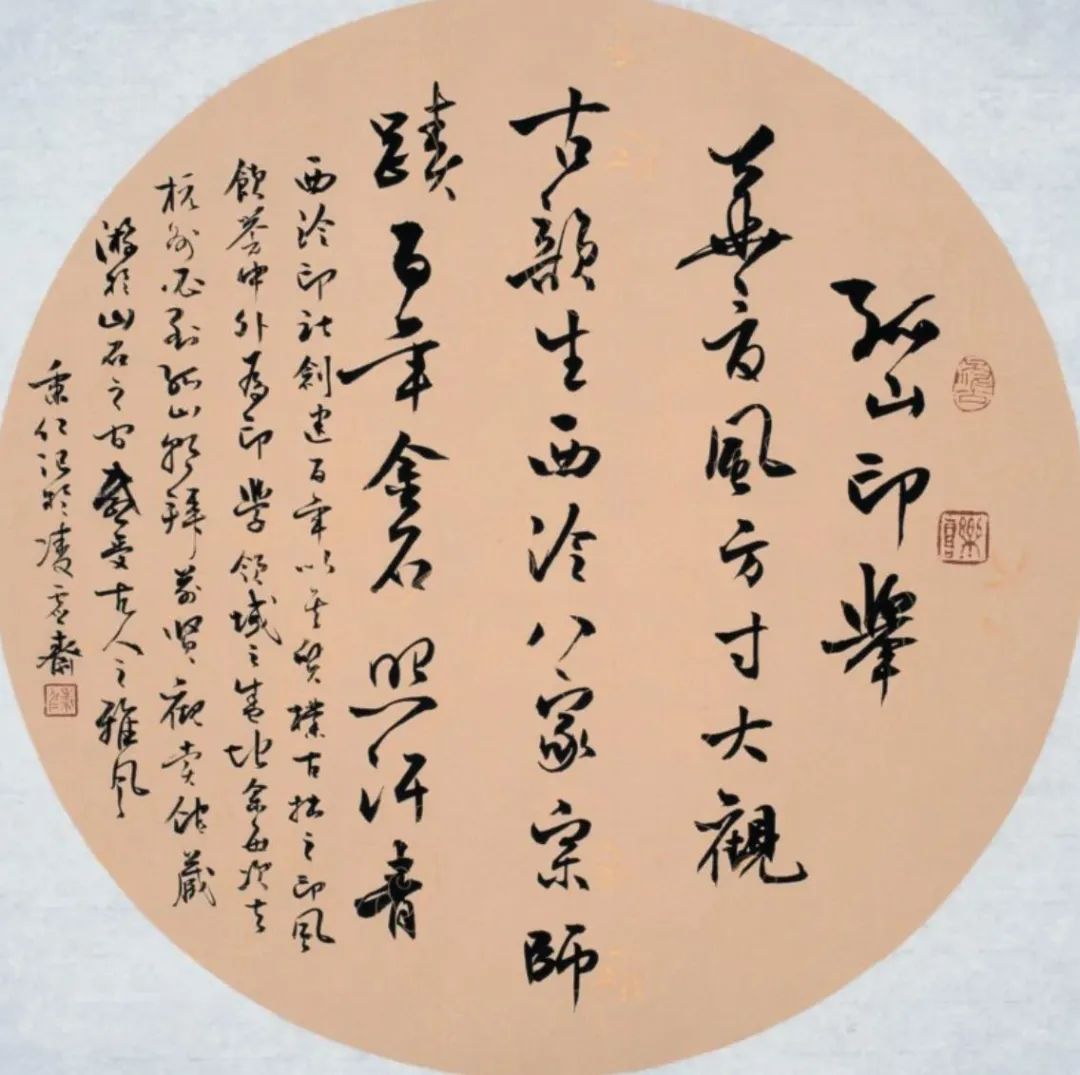 孤山印舉
華夏風方寸大觀
古韻生西泠八家宗師
蹟百年金石照汗青
西泠印社創建百年以其質樸古拙之印風
飲譽中外為印學領域之地余每次去
杭州必到孤山朝拜前賢觀賞館藏
游於山石之間感受古人之雅風
秉仁記於凌齋